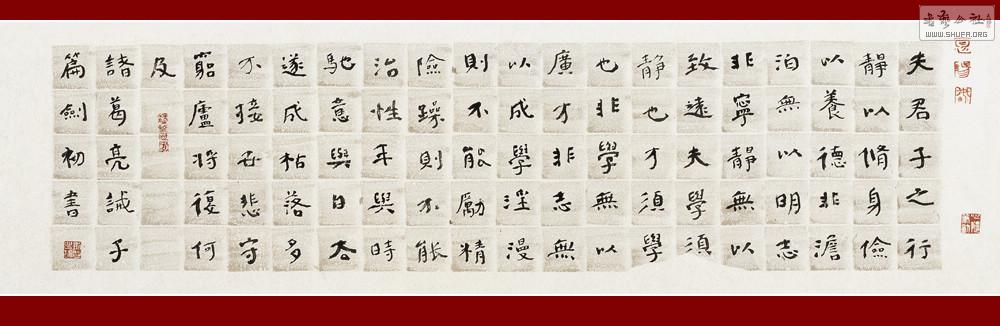 夫君子之行
靜以脩身儉
以養德非澹
泊無以明志
非寧靜無以
致遠夫學須
靜也才須學
也非學無以
廣才非志無
以成學淫漫
則不能勵精
險躁則不能
治性年與時
馳意與日去
遂成枯落多
不接世悲守
窮廬將復何
及
諸葛亮誡子
篇劍初書
WWW.SHUFA.ORG